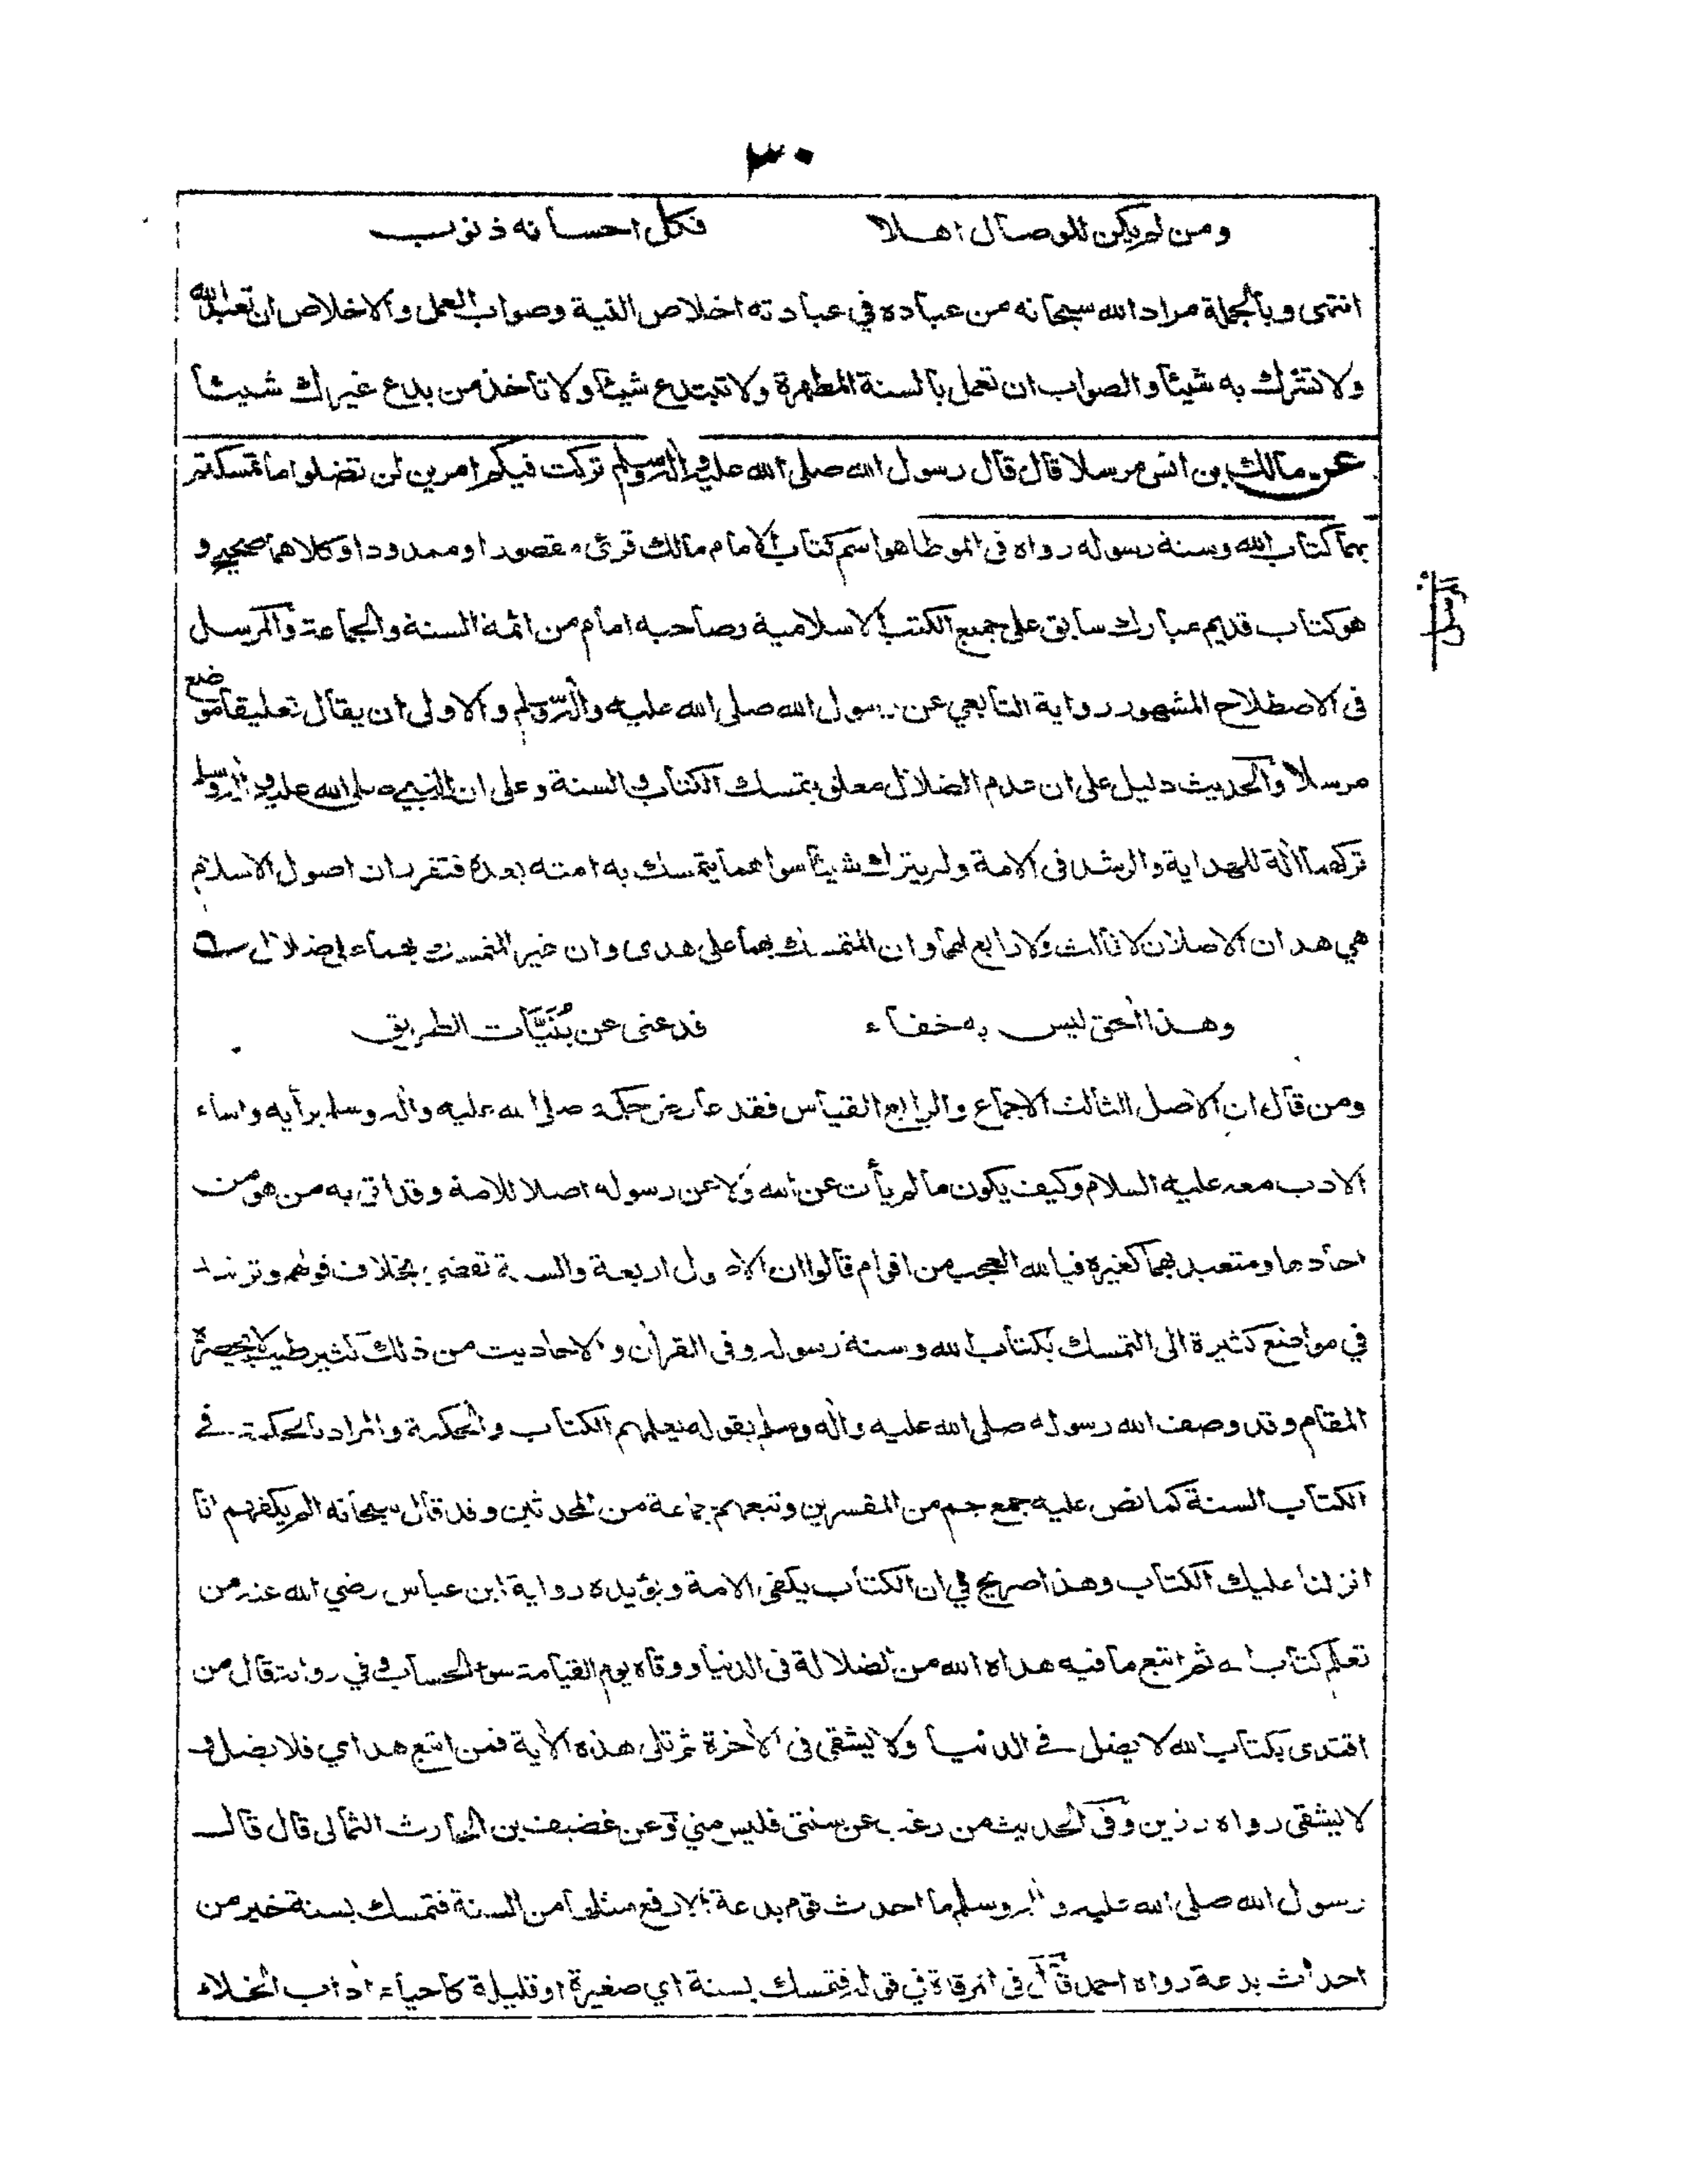 ٣٠
ومن لم يكن للوصال اهلا فكل احسانه ذنوب
انتهى وبالجملة مراد الله سبحانه من عباده في عبادته اخلاص النية وصواب العمل والاخلاص ان تعبد الله
ولا تشرك به شيئا والصواب ان تعمل بالسنة المطهرة ولا تبتدع شيئا ولا تاخذ من بدع غيرك شيئا
عن مالك بن انس مرسلا قال قال رسول الله صلى الله عليه واله وسلم تركت فيكم امرين لن تضلوا ما تمسكتم
بهما كتاب الله وسنة رسوله رواه فى الموطا هو اسم كتاب الامام مالك قرئ مقصورا وممدودا وكلاهما صحيح و
هو كتاب قديم مبارك سابق على جميع الكتب الاسلامية وصاحبه امام من ائمة السنة والجماعة والمرسل
فى الاصطلاح المشهور رواية التابعي عن رسول الله صلى الله عليه واله وسلم والاولى ان يقال تعليقا موضع
مرسلا والحديث دليل على ان عدم الضلال معلق بتمسك الكتاب والسنة وعلى ان النبي صلى الله عليه واله وسلم
تركهما الة للهداية والرشد فى الامة ولم يترك شيئا سواهما يتمسك به امته بعده فتقرر ان اصول الاسلام
هي هذان الاصلان لا ثالث ولا رابع لهما وان المتمسك بهما على هدى وان غير المتمسك بهما على ضلال
وهذا الحق ليس به خفاء فدعنى عن بُنَيَّات الطريق
ومن قال ان الاصل الثالث الاجماع والرابع القياس فقد عارض حكمه صلى الله عليه واله وسلم برأيه واساء
الادب معه عليه السلام وكيف يكون ما لم يأت عن الله ولا عن رسوله اصلا للامة وقد اتى به من هو من
احادها ومتعبد بهما كغيره فيا لله العجب من اقوام قالوا ان الاصول اربعة والسنة تقضي بخلاف قولهم وترشد
في مواضع كثيرة الى التمسك بكتاب الله وسنة رسوله وفى القران والاحاديث من ذلك كثير طيب لا يحصره
المقام وقد وصف الله رسوله صلى الله عليه واله وسلم بقوله يعلمهم الكتاب والحكمة والمراد بالحكمة في
الكتاب السنة كما نص عليه جمع جم من المفسرين وتبعهم جماعة من المحدثين وقد قال سبحانه الم يكفهم انا
انزلنا عليك الكتاب وهذا صريح في ان الكتاب يكفى الامة ويؤيده رواية ابن عباس رضي الله عنه من
تعلم كتاب الله ثم اتبع ما فيه هداه الله من الضلالة فى الدنيا ووقاه يوم القيامة سوء الحساب وفي رواية قال من
اقتدى بكتاب الله لا يضل في الدنيا ولا يشقى فى الأخرة ثم تلى هذه الأية فمن اتبع هداي فلا يضل و
لا يشقى رواه رزين وفى الحديث من رغب عن سنتى فليس مني وعن غضيف بن الحارث الثمالى قال قال
رسول الله صلى الله عليه واله وسلم ما احدث قوم بدعة الا رفع مثلها من السنة فتمسك بسنة خير من
احداث بدعة رواه احمد قال فى المرقاة في قوله فتمسك بسنة اي صغيرة او قليلة كاحياء اداب الخلاء